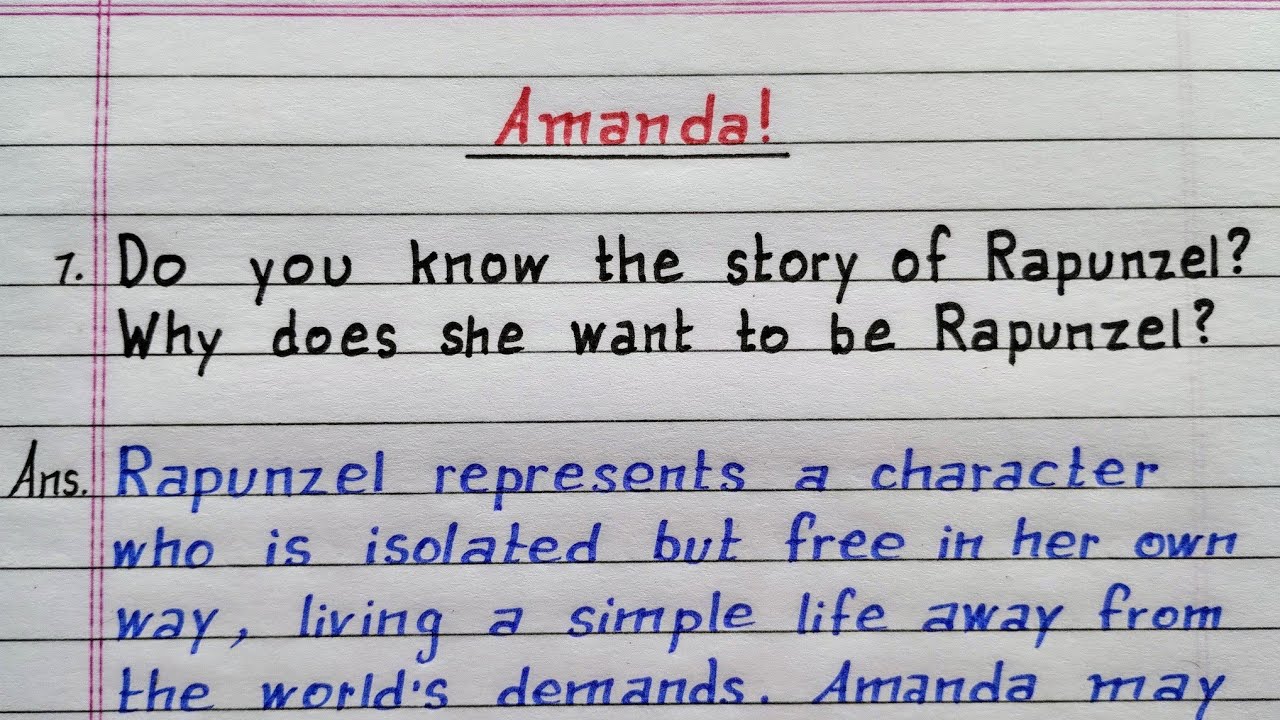 Amanda!
1. Do you know the story of Rapunzel?
Why does she want to be Rapunzel?
Ans. Rapunzel represents a character
who is isolated but free in her own
way, living a simple life away from
the world's demands. Amanda may